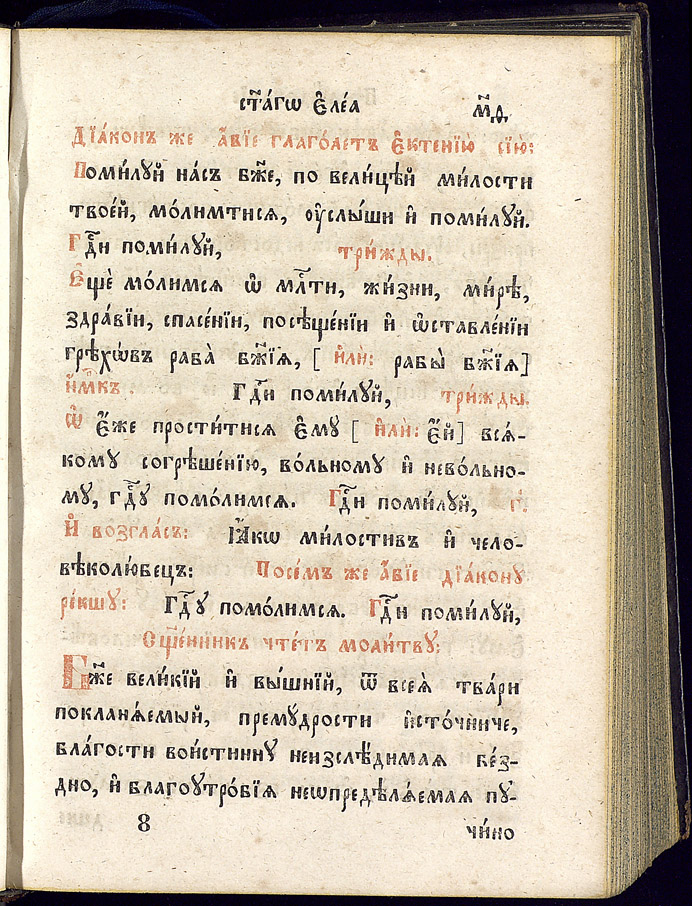 ст҃а́гѡ є҆ле́а м҃д
Дїа́конъ же а҆́бїе глаго́летъ є҆ктенїю̀ сїю̀:
Поми́лꙋй на́съ бж҃е, по вели́цѣй ми́лости
твое́й, мо́лимтисѧ, оу҆слы́ши и҆ поми́лꙋй.
Гдⷭ҇и поми́лꙋй, три́жды.
Є҆щѐ мо́лимсѧ ѡ҆ млⷭ҇ти, жи́зни, ми́рѣ,
здра́вїи, спасе́нїи, посѣще́нїи и҆ ѡ҆ставле́нїи
грѣхѡ́въ раба̀ бж҃їѧ, [ и҆лѝ: рабы̀ бж҃їѧ]
и҆́мⷬ҇къ. Гдⷭ҇и поми́лꙋй, три́жды.
Ѡ҆ є҆́же прости́тисѧ є҆мꙋ̀ [ и҆лѝ: є҆́й] всѧ́-
комꙋ согрѣше́нїю, во́льномꙋ и҆ нево́льно-
мꙋ, гдⷭ҇ꙋ помо́лимсѧ. Гдⷭ҇и поми́лꙋй, г҃.
И҆ возгла́съ: Ꙗ҆́кѡ ми́лостивъ и҆ чело-
вѣколю́бецъ: Посе́мъ же а҆́бїе дїа́конꙋ
ре́кшꙋ: Гдⷭ҇ꙋ помо́лимсѧ. Гдⷭ҇и поми́лꙋй,
Сщ҃е́нникъ чте́тъ моли́твꙋ:
Бж҃е вели́кїй и҆ вы́шнїй, ѿ всеѧ̀ тва́ри
покланѧ́емый, премꙋ́дрости и҆сто́чниче,
бла́гости вои́стиннꙋ неизслѣ́димаѧ бе́з-
дно, и҆ благоꙋтро́бїѧ неѡпредѣлѧ́емаѧ пꙋ-
8 чи́но